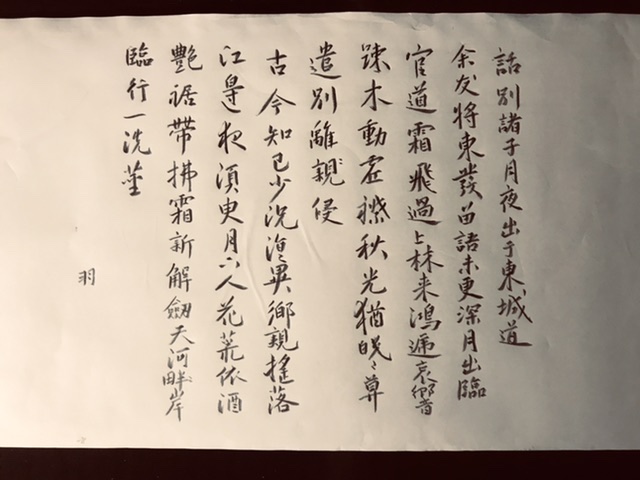 話別諸子月夜出于東城道
余友將東發留語未更深月出臨
官道霜飛過上林来鴻遞哀響
踈木動虛襟秋光猶皎々尊
遣別離親侵
古今知己少況復異鄉親搖落
江皋夜須臾月下人花葉依酒
艷裾帶拂霜新解劔天河畔岸
臨行一洗塵
羽